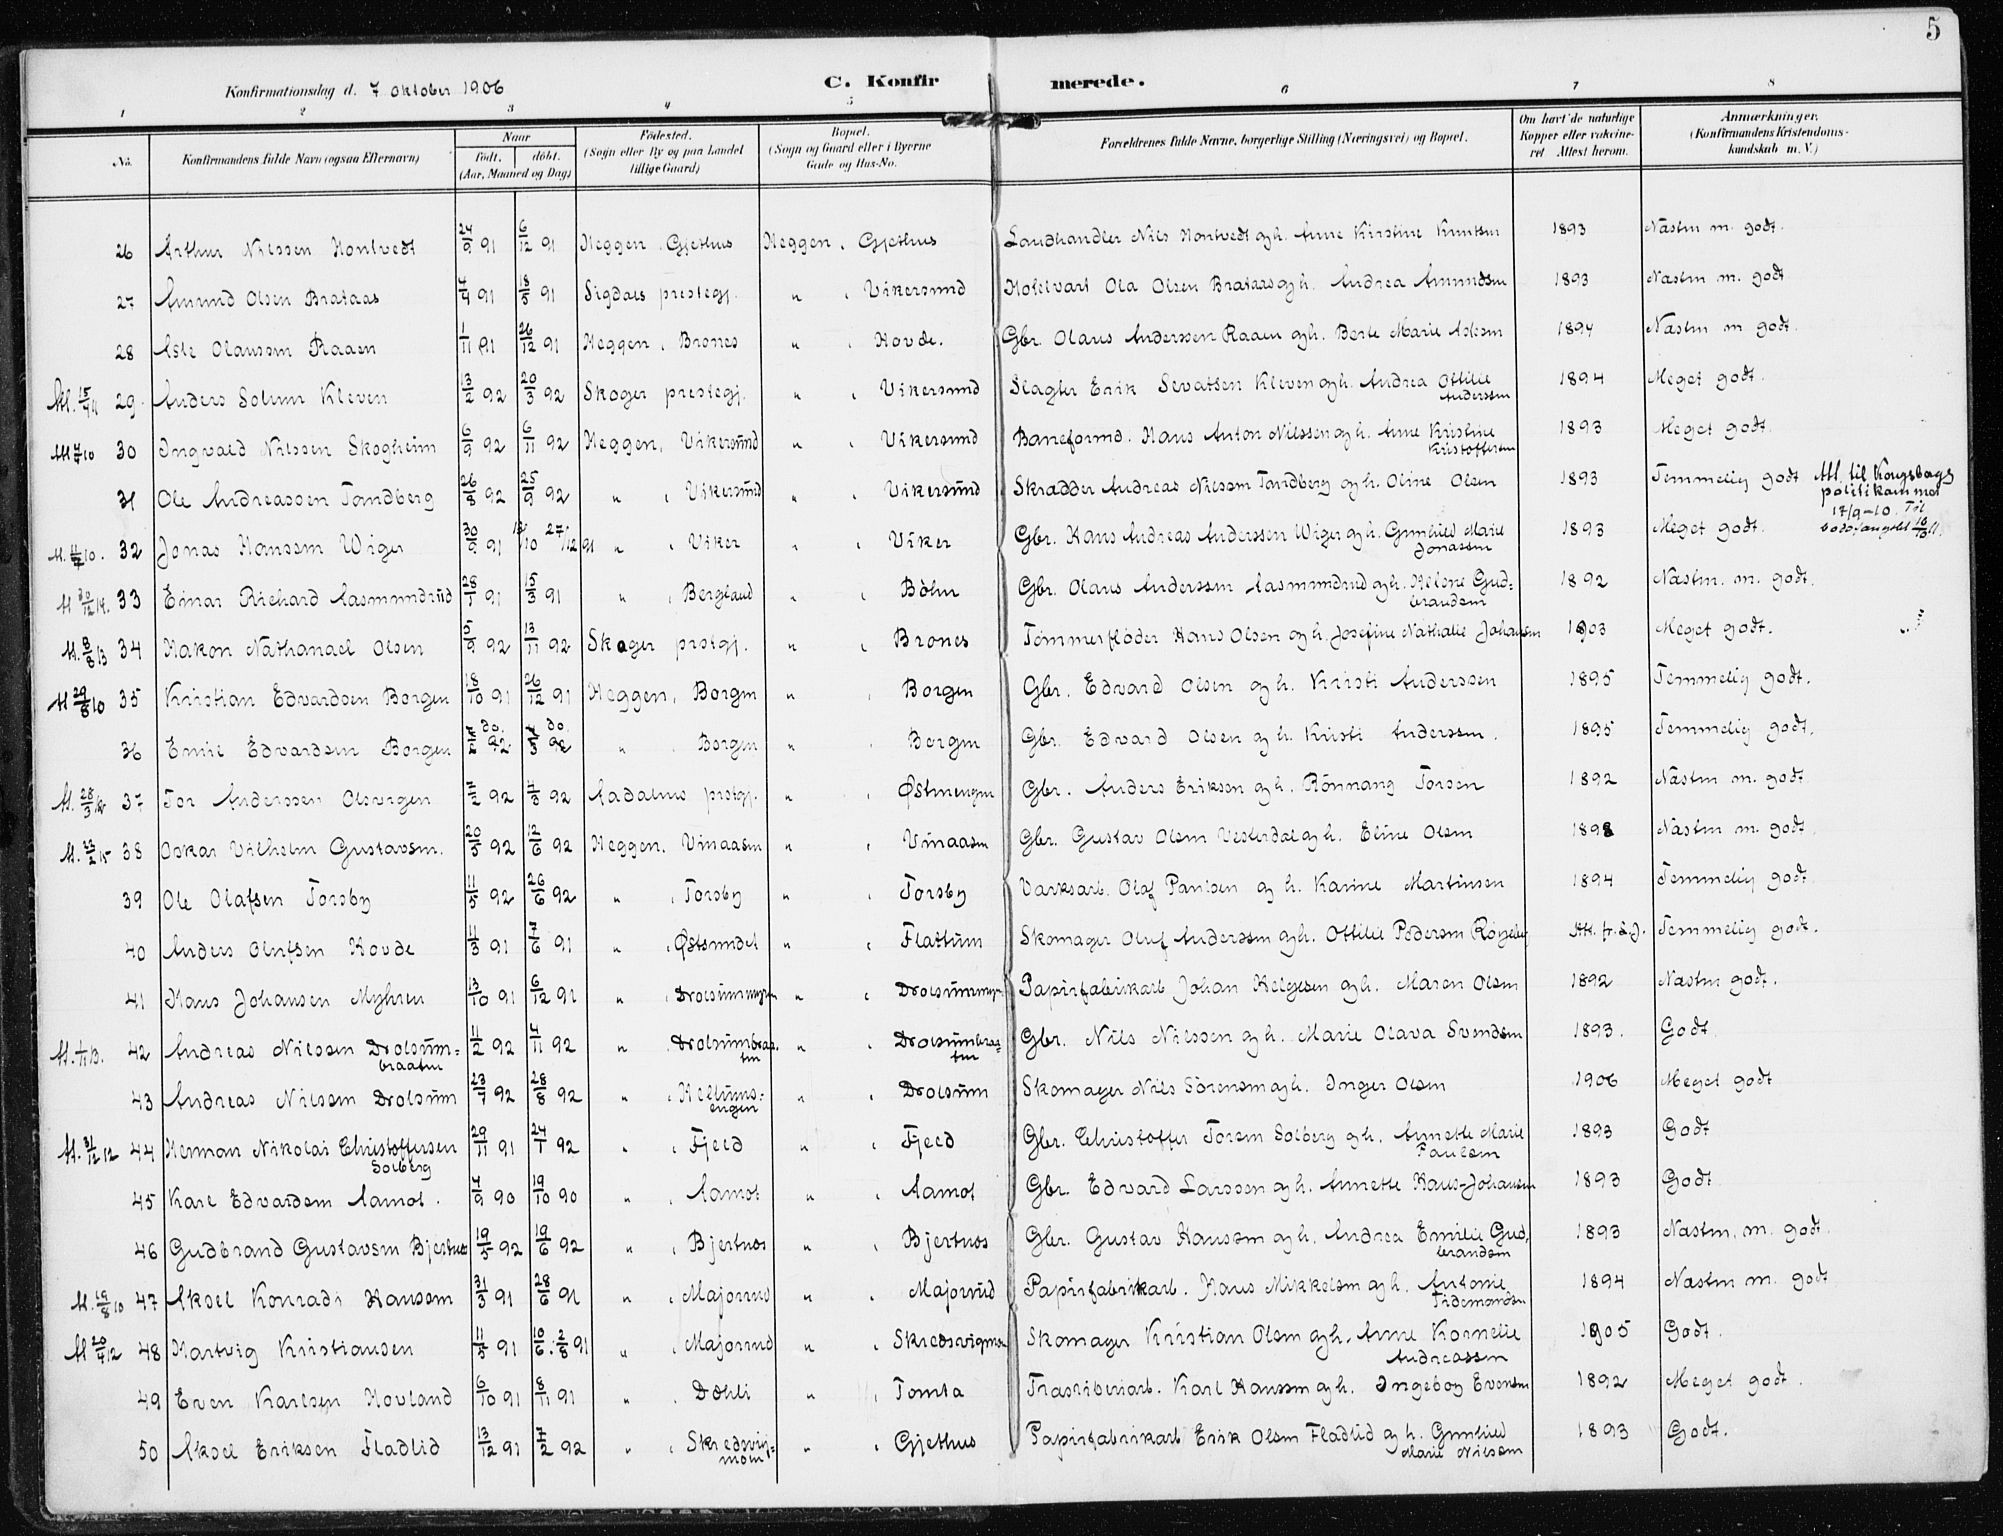 5
Konfirmationsdag d. 7 Oktober 1906 C. Konfir merede.
1 2 3 4 5 6 7 8
No. Konfirmandens fulde Navn (ogsaa Efternavn) Naar født, døbt. (Aar, Maaned og Dag) Fødested. (Sogn eller By og paa Landet tillige Gaard) Bopæl. (Sogn og Gaard eller i Byerne Gade og Hus-No. Forældrenes fulde Navne, borgerlige Stilling (Næringsvei) og Bopæl. Om havt de naturlige Kopper eller vakcineret Attest herom. Anmærkninger. (Konfirmandens Kristendomskundskab m. V.)
26 Arthur Nilssen Hontvedt 24/9 91 6/12 91 Heggen, Gjethus Heggen, Gjethus Landhandler Nils Hontvedt og h. Anne Kirstine Knutsen 1893 Næsten m. godt.
27 Amund Olsen Brataas 7/4 91 18/5 91 Sigdals prestegj. " , Vikersund Hotelvært Ola Olsen Brataas og h. Andrea Amundsen 1893 Næsten m. godt
28 Asle Olaussen Raaen 1/11 91 26/12 91 Heggen, Brones " , Hovde. Gbr. Olaus Anderssen Raaen og h. Berte Marie Aslesen 1894 Næsten m godt.
Att. 15/4 11 29. Anders Solum Kleven 13/2 92 20/3 92 Skoger prestegj. " , Vikersund Slagter Erik Sevatsen Kleven og h. Andrea Ottilie Anderssen 1894 Meget godt.
Att 7/4 10 30 Ingvald Nilssen Skogheim 6/9 92 6/11 92 Heggen, Vikersund " , Vikersund Baneformd. Hans Anton Nilssen og h. Anne Kristine Kristoffersen 1893 Meget godt.
31 Ole Andreassen Tandberg 26/8 92 25/9 92 " , Vikersund " , Vikersund Skrædder Andreas Nilssen Tandberg og h. Oline Olsen 1893 Temmelig godt Att. til Kongsbergs politikammer 17/9-10. Til bodsfængslet 10/3 11.
At. 10. 32 Jonas Hanssen Wiger 30/9 91 27/12 91 " , Viker " , Viker Gbr. Hans Andreas Anderssen Wiger og h. Gunhild Marie Jonassen 1893 Meget godt.
At 30/12 14. 33 Einar Richard Aasmundrud 28/1 91 15/3 91 " , Bergland " , Böhn Gbr. Olaus Anderssen Aasmundrud og h. Helene Gudbrandsen 1892 Næsten m. godt.
At. 8/8 13 34 Hakon Nathanael Olsen 5/9 92 13/11 92 Skoger prstgj. " , Brones Tømmerfløder Hans Olsen og h. Josefine Nathalie Johansen 1903 Meget godt.
At 29/8 10 35 Kristian Edvardsen Borgen 18/10 91 26/12 91 Heggen, Borgen " , Borgen Gbr. Edvard Olsen og h. Kristi Anderssen 1895 Temmelig godt.
36 Emil Edvardsen Borgen do. do. " , Borgen " , Borgen Gbr. Edvard Olsen og h. Kristi Anderssen. 1895 Temmelig godt.
At. 28/3 37 Tor Anderssen Olsvigen 92 92 Aadalens prstgj. " , Østmengen Gbr. Anders Eriksen og h. Rönnang Torsen 1892 Næsten m. godt
At. 23/2 15 38 Oskar Vilhelm Gustavsen. 20/5 92 12/6 92 Heggen, Vinaasen " , Vinaasen Gbr. Gustav Olsen Vesterdal og h. Eline Olsen Næsten m. godt.
39 Ole Olafsen Torsby 11/5 92 26/6 92 " , Torsby " , Torsby Værksarb. Olaf Paulsen og h. Karine Martinsen 1894 Temmelig godt.
40 Anders Olufsen Hovde 11/3 91 7/6 91 " , Østsundet " , Flattum Skomager Oluf Anderssen og h. Ottilie Pedersen Att. fr. d. J. Temmelig godt.
41 Hans Johansen Myhren 13/10 91 6/12 91 " , Drolsummyren " , Drolsummyren Papirfabrikarb Johan Helgesen og h. Maren Olsen 1892 Næsten godt.
At. 1/11 13. 42 Andreas Nilssen Drolsumbraaten 11/2 92 4/11 92 " , Drolsumbraaten " , Drolsumbraaten Gbr. Nils Nilssen og h. Marie Olava Svendsen 1893. Godt.
43 Andreas Nilssen Drolsum 23/7 92 28/8 92 " , Hellumsengen " , Drolsum Skomager Nils Sörensen og h. Inger Olsen 1906 Meget godt
At. 31/12 12 44 Herman Nikolai Christoffersen Solberg 29/11 91 24/1 92 " , Fjeld " , Fjeld Gbr. Christoffer Torsen Solberg og h. Annette Marie Paulsen 1893 Godt
45 Karl Edvardsen Aamot. 4/9 90 19/10 90 " , Aamot " , Aamot Gbr. Edvard Larssen og h. Annette Hans-Johansen 1893 Godt
46 Gudbrand Gustavsen Bjertnes 19/5 92 19/6 92 " , Bjertnes " , Bjertnes Gbr. Gustav Hanssen og h. Andrea Emilie Gudbrandsen 1893 Næsten. m. godt.
At. 19/8 10 47 Aksel Konradi Hanssen 31/3 91 28/6 91 " , Majorud " , Majorud Papirfabrikarb. Hans Mikkelsen og h. Antonie Tidemandsen 1894 Næsten m. godt
At 20/4 12 48 Hartvig Kristiansen 11/5 91 10/6. 2/8 91 " , Majorud " , Skredsvigmoen Skomager Kristian Olsen og h. Anne Kornelie Andreassen 1905 Godt.
49 Even Karlsen Hovland 6/10 91 8/11 91 " , Døhli " , Tomta Træsliberiarb. Karl Hanssen og h. Ingebog Evensen 1892 Meget godt.
50 Aksel Eriksen Fladlid 13/12 91 7/2 92 " , Skredsvigmoen " , Gjethus Papirfabrikarb Erik Olsen Fladlid og h. Gunhild Marie Nilssen 1893 Godt.